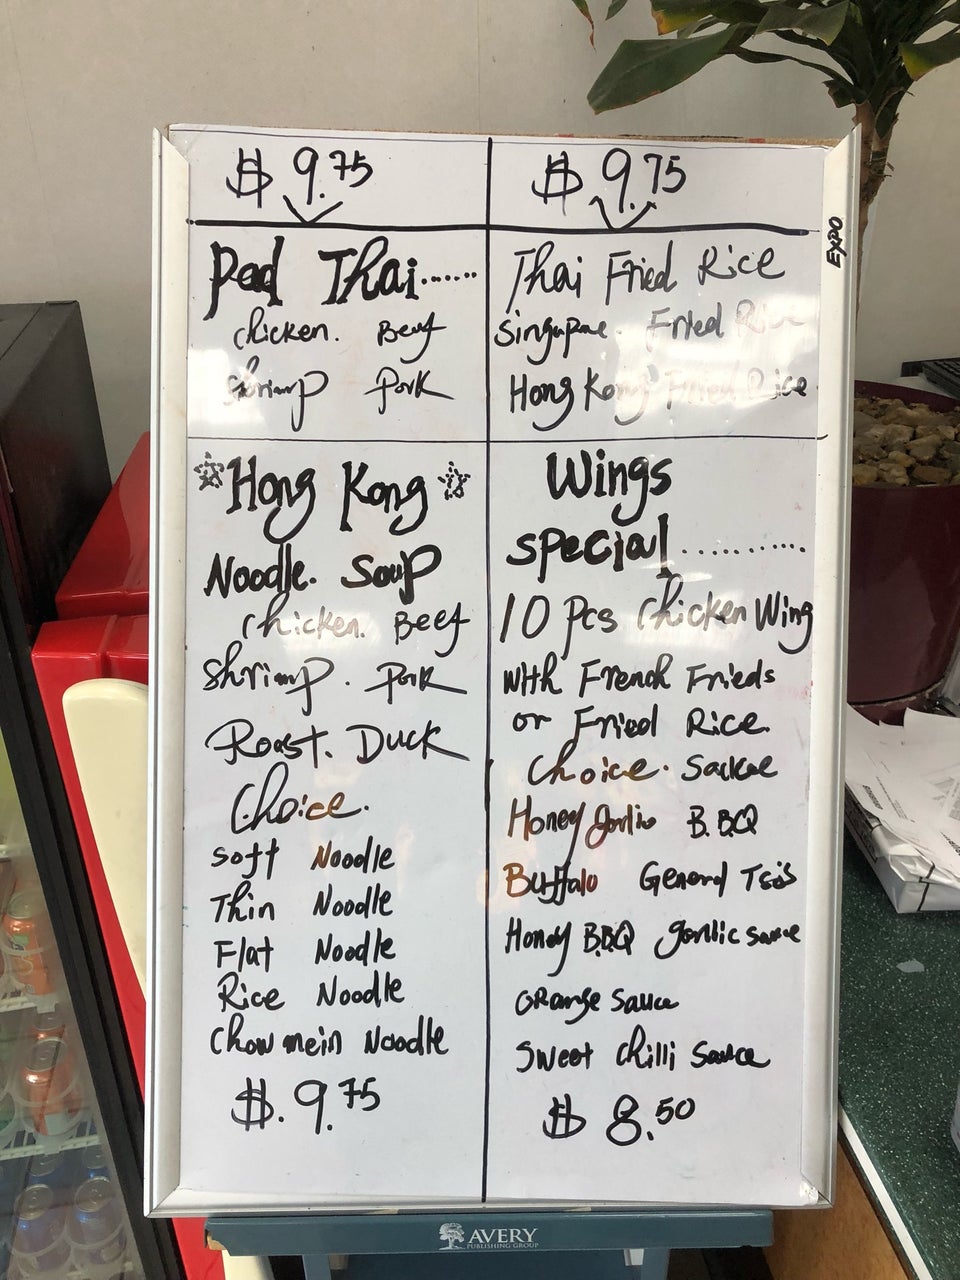 $ 9.75
Pad Thai.......
chicken. Beef
Shrimp Pork
Hong Kong
Noodle. Soup
Chicken. Beef
Shrimp. Pork
Roast. Duck
Choice.
Soft Noodle
Thin Noodle
Flat Noodle
Rice Noodle
Chow mein Noodle
$. 9.75
$ 9.75
Thai Fried Rice
Singapore. Fried Rice
Hong Kong Fried Rice
Wings
special............
10 Pcs Chicken Wing
with French Frieds
or Fried Rice.
Choice. Sauce
Honey garlic B.BQ
Buffalo General Tso's
Honey B.BQ garlic sauce
orange sauce
Sweet chilli sauce
$ 8.50
EXPO
AVERY
PUBLISHING GROUP